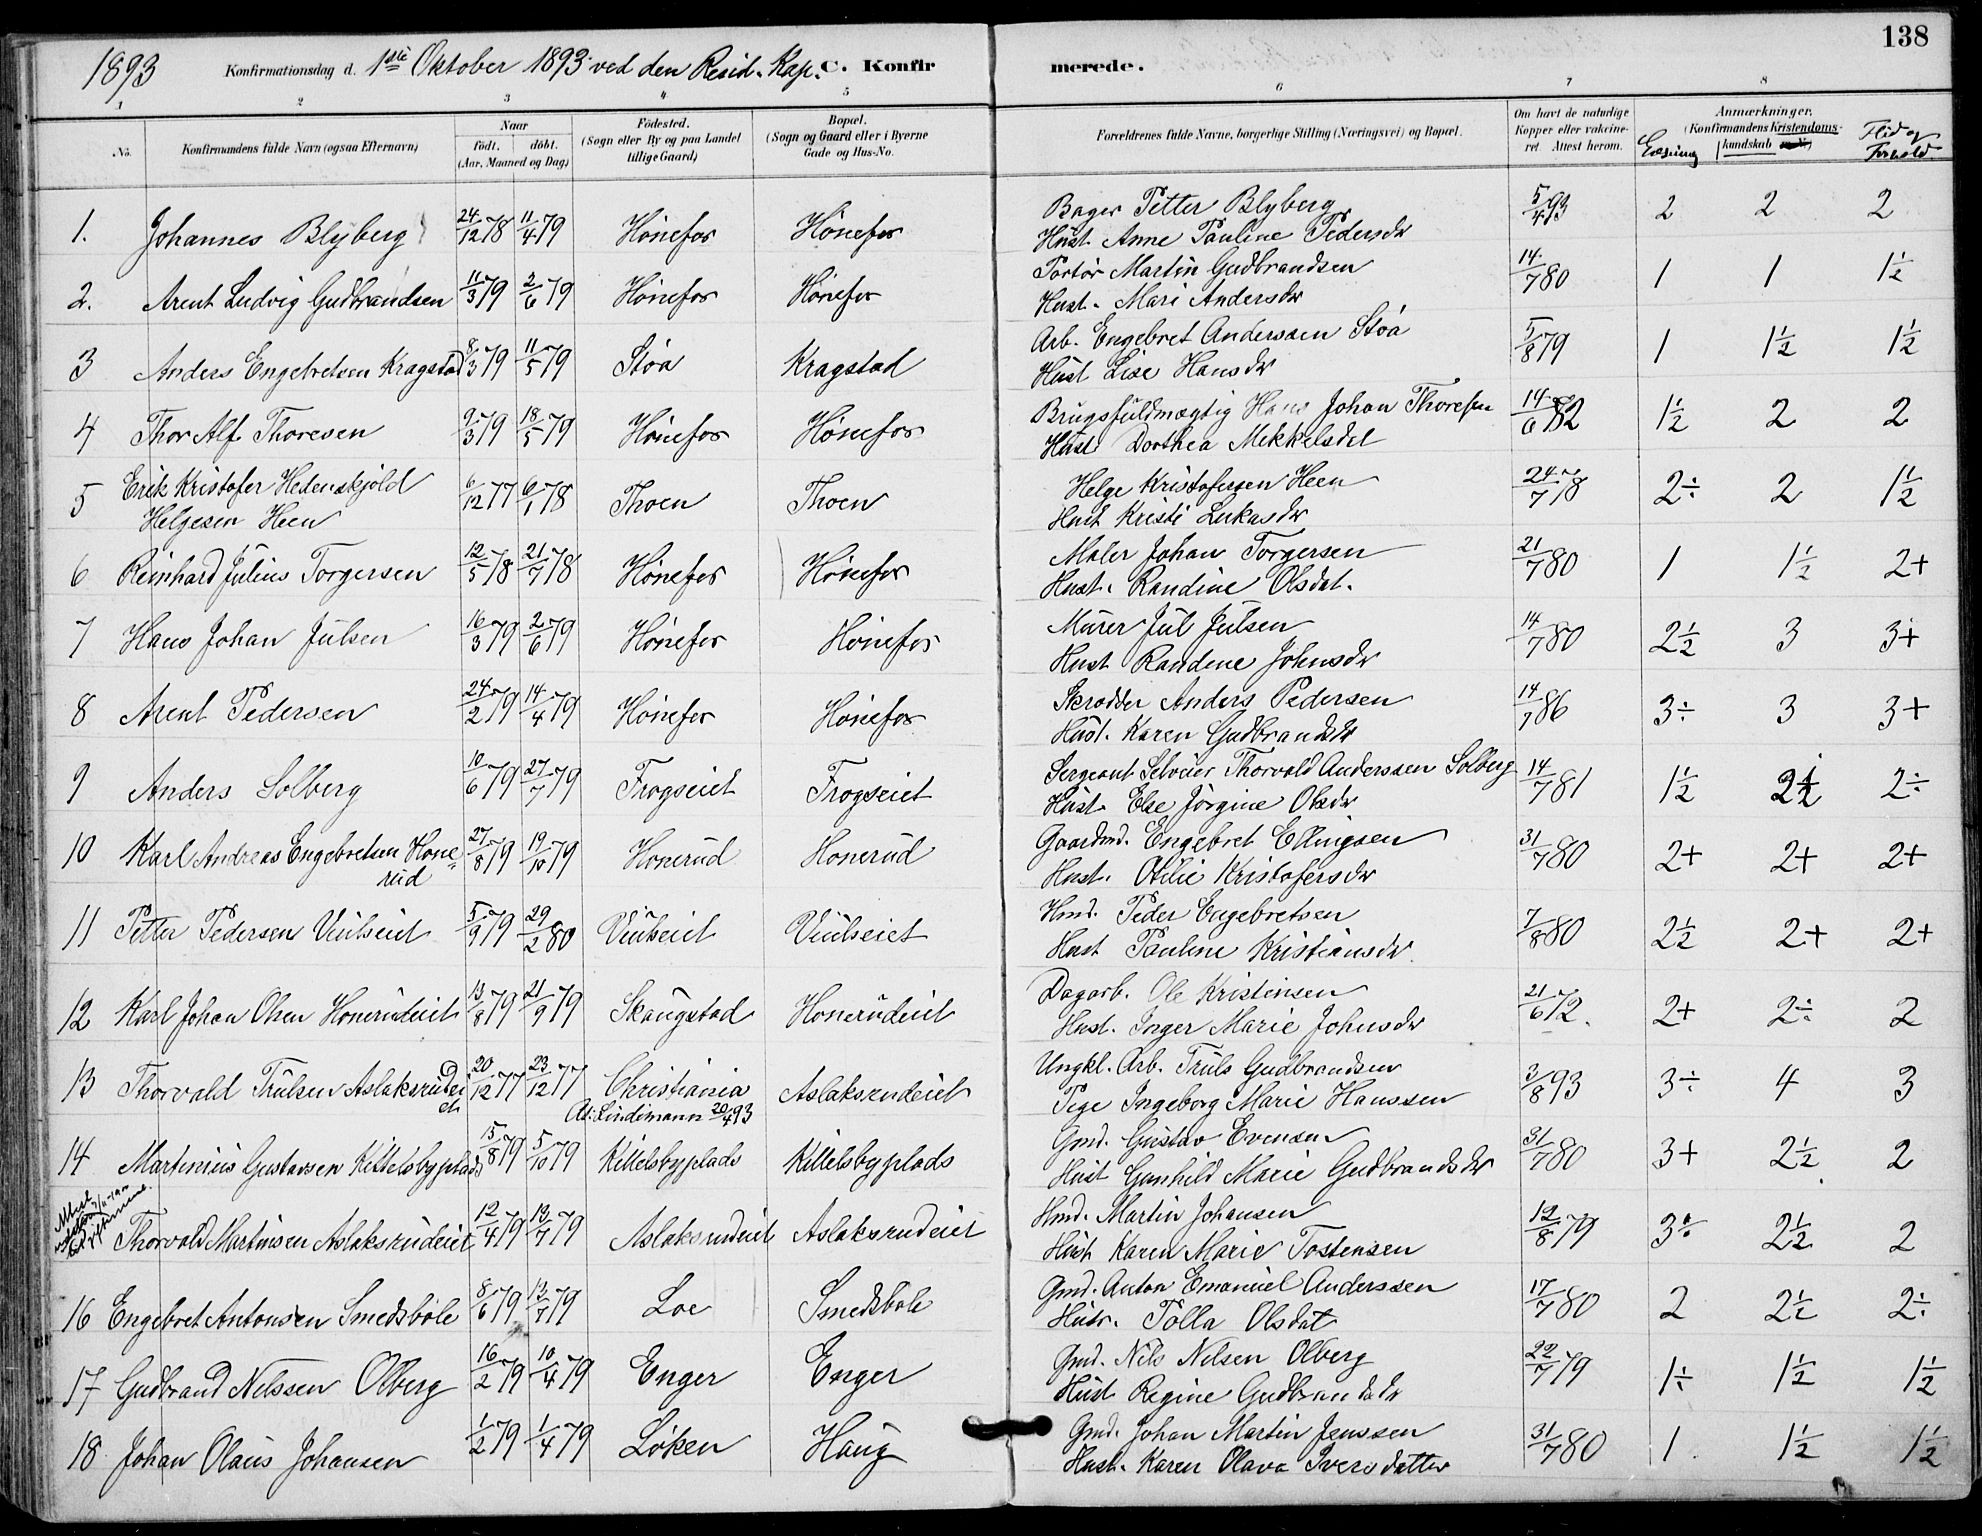 138
1893 Konfirmationsdag d. 1ste Oktober 1893 ved den Resid. Kap. C. Konfirmerede.
1 2 3 4 5 6 7 8
No. Konfirmandens fulde Navn (ogsaa Efternavn) Naar födt. döbt. (Aar, Maaned og Dag) Födested. (Sogn eller By og paa Landet tillige Gaard) Bopæl. (Sogn og Gaard eller i Byerne Gade og Hus-No. Forældrenes fulde Navne, borgerlige Stilling (Næringsvei) og Bopæl. Om havt de naturlige Kopper eller vakcineret. Attest herom. Anmærkninger. (Konfirmandens Kristendomskundskab Flid og Forhold
1. Johannes Blyberg 24/12 78 11/4 79 Hönefos Hönefos Bager Petter Blyberg 5/4 93 2 2 2
Hust. Anne Pauline Pedersdr
2. Arent Ludvig Gudbrandsen 11/3 79 2/6 79 Hönefos Hönefos Martin Gudbrandsen 14/7 80 1 1 1½
Hust. Mari Andersdr
3 Anders Engebretsen Kragstad 8/3 79 11/5 79 Stöa Kragstad Arb. Engebret Anderssen Stöa 5/8 79 1 1½ 1½
Hust Lise Hansdr
4 Thor Alf Thoresen 9/3 79 18/5 79 Hönefos Hönefos Brugsfuldmægtig Hans Johan Thoresen 14/6 82 1½ 2 2
Hust Dorthea Mekkelsdat
5 Erik Kristofer Hedenskjöld 6/12 77 6/1 78 Thoen Thoen Helge Kristofersen Heen 24/7 78 2÷ 2 1½
Helgesen Heen Hust Kristi Lukasdr
6 Reinhard Julius Torgersen 12/5 78 21/7 78 Hönefos Hönefos Maler Johan Torgersen 21/7 80 1 1½ 2+
Hust. Randine Olsdat.
7 Hans Johan Julsen 16/3 79 2/6 79 Hönefos Hönefos Murer Jul Julsen 14/7 80 2½ 3 3+
Hust Randine Johnsdr
8 Arent Pedersen 24/2 79 14/4 79 Hönefos Hönefos Skrædder Anders Pedersen 14/7 86 3÷ 3 3+
Hust. Karen Gudbrandsdr
9 Anders Solberg 10/6 79 27/7 79 Frogseiet Frogseiet Sergeant Selveier Thorvald Anderssen Solberg 14/7 81 1½ 2½ 2÷
Hust. Else Jörgine Olsdr
10 Karl Andreas Engebretsen Hone- 27/8 79 19/10 79 Honerud Honerud Gaardmd. Engebret Ellingsen 31/7 80 2+ 2+ 2+
rud Hust. Otilie Kristofersdr
11 Petter Pedersen Viulseiet 5/9 79 29/2 80 Viulseiet Viulseiet Hmd. Peder Engebretsen 7/8 80 2½ 2+ 2+
Hust Pauline Kristiansdr.
12 Karl Johan Olsen Honerudeiet 13/8 79 21/9 79 Skaugstad Honerudeiet Dagarb. Ole Kristensen 21/6 72. 2+ 2÷ 2
Hust. Inger Marie Johnsdr
13 Thorvald Trulsen Aslaksrudei 20/12 77 23/12 77 Christiania Aslaksrudeiet Ungkl. Arb. Truls Gudbrandsen 3/8 93 3÷ 4 3
et At: Lindemann 20/4 93 Pige Ingeborg Marie Hanssen
14 Martinius Gustavsen Kittelsbyplads 15/8 79 5/10 79 Kittelsbyplads Kittelsbyplads Gmd. Gustav Evensen 31/7 80 3+ 2½ 2
Hust Gunhild Marie Gudbrandsdr
Attest
Thorvald Martinsen Aslaksrudeiet 12/4 79 13/7 79 Aslaksrudeiet Aslaksrudeiet Hmd. Martin Johansen 12/8 79 3÷ 2½ 2
Hust Karen Marie Tostensen
16 Engebret Antonsen Smedsböle 8/6 79 13/7 79 Loe Smedsböle Gmd. Anton Emanuel Anderssen 17/7 80 2 2½ 2÷
Hustr. Tolla Olsdat
17 Gudbrand Nilssen Olberg 16/2 79 10/4 79 Enger Enger Gmd. Nils Nilsen Olberg 22/7 79 1÷ 1½ 1½
Hust Regine Gudbrandsdr
18 Johan Olaus Johansen 1/2 79 1/4 79 Löken Haug Gmd. Johan Martin Jenssen 31/7 80 1 1½ 1½
Hust. Karen Olava Iversdatter